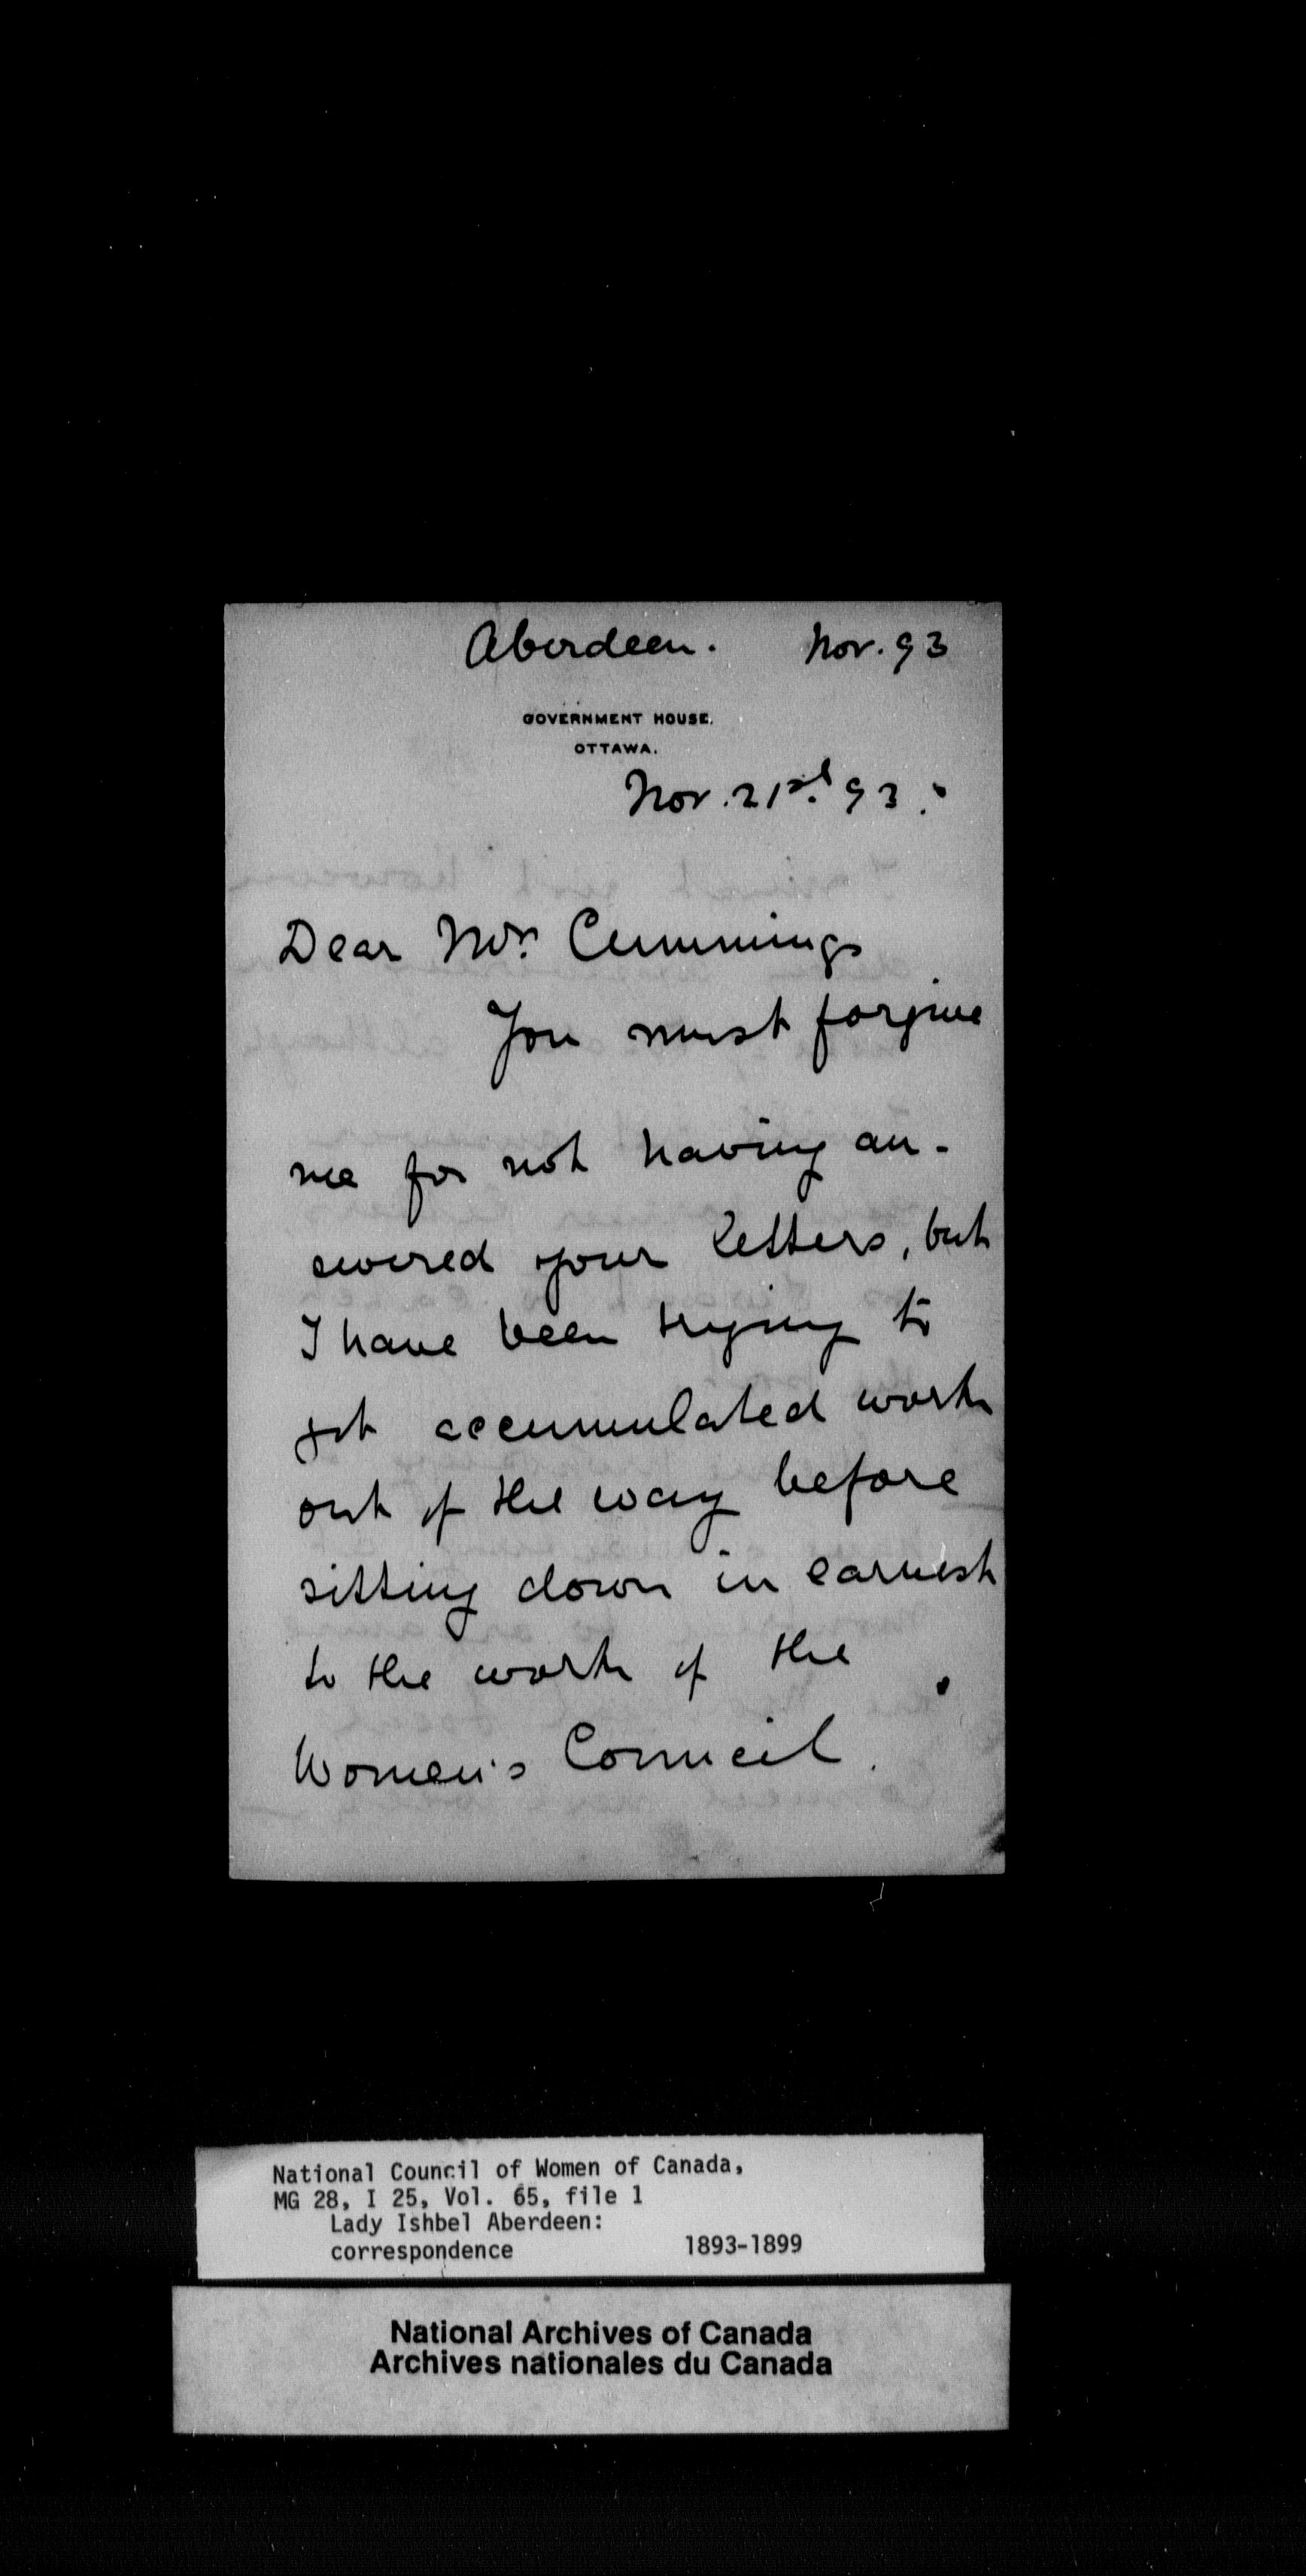 Aberdeen. Nov. 93
GOVERNMENT HOUSE.
OTTAWA.
Nov. 21st. 93.
Dear Mrs. Cummings
You must forgive
me for not having an-
swered your letters, but
I have been trying to
get accumulated work
out of the way before
sitting down in earnest
to the work of the
Women's Council.
National Council of Women of Canada,
MG 28, I 25, Vol. 65, file 1
Lady Ishbel Aberdeen:
correspondence 1893-1899
National Archives of Canada
Archives nationales du Canada